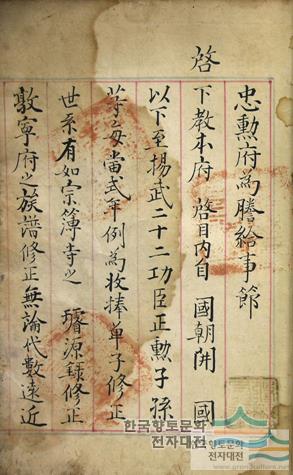 忠勳府為謄給事節
啓
下教本府 啓目內自 國朝開 國
以下至揚武二十二功臣正勳子孫
等每當式年例為收捧單子修正
世系有如宗簿寺之 璿源錄修正
敦寧府之族譜修正無論代數遠近
한국향토문화
전자대전
향토문화
전자대전
www.grandculture.net